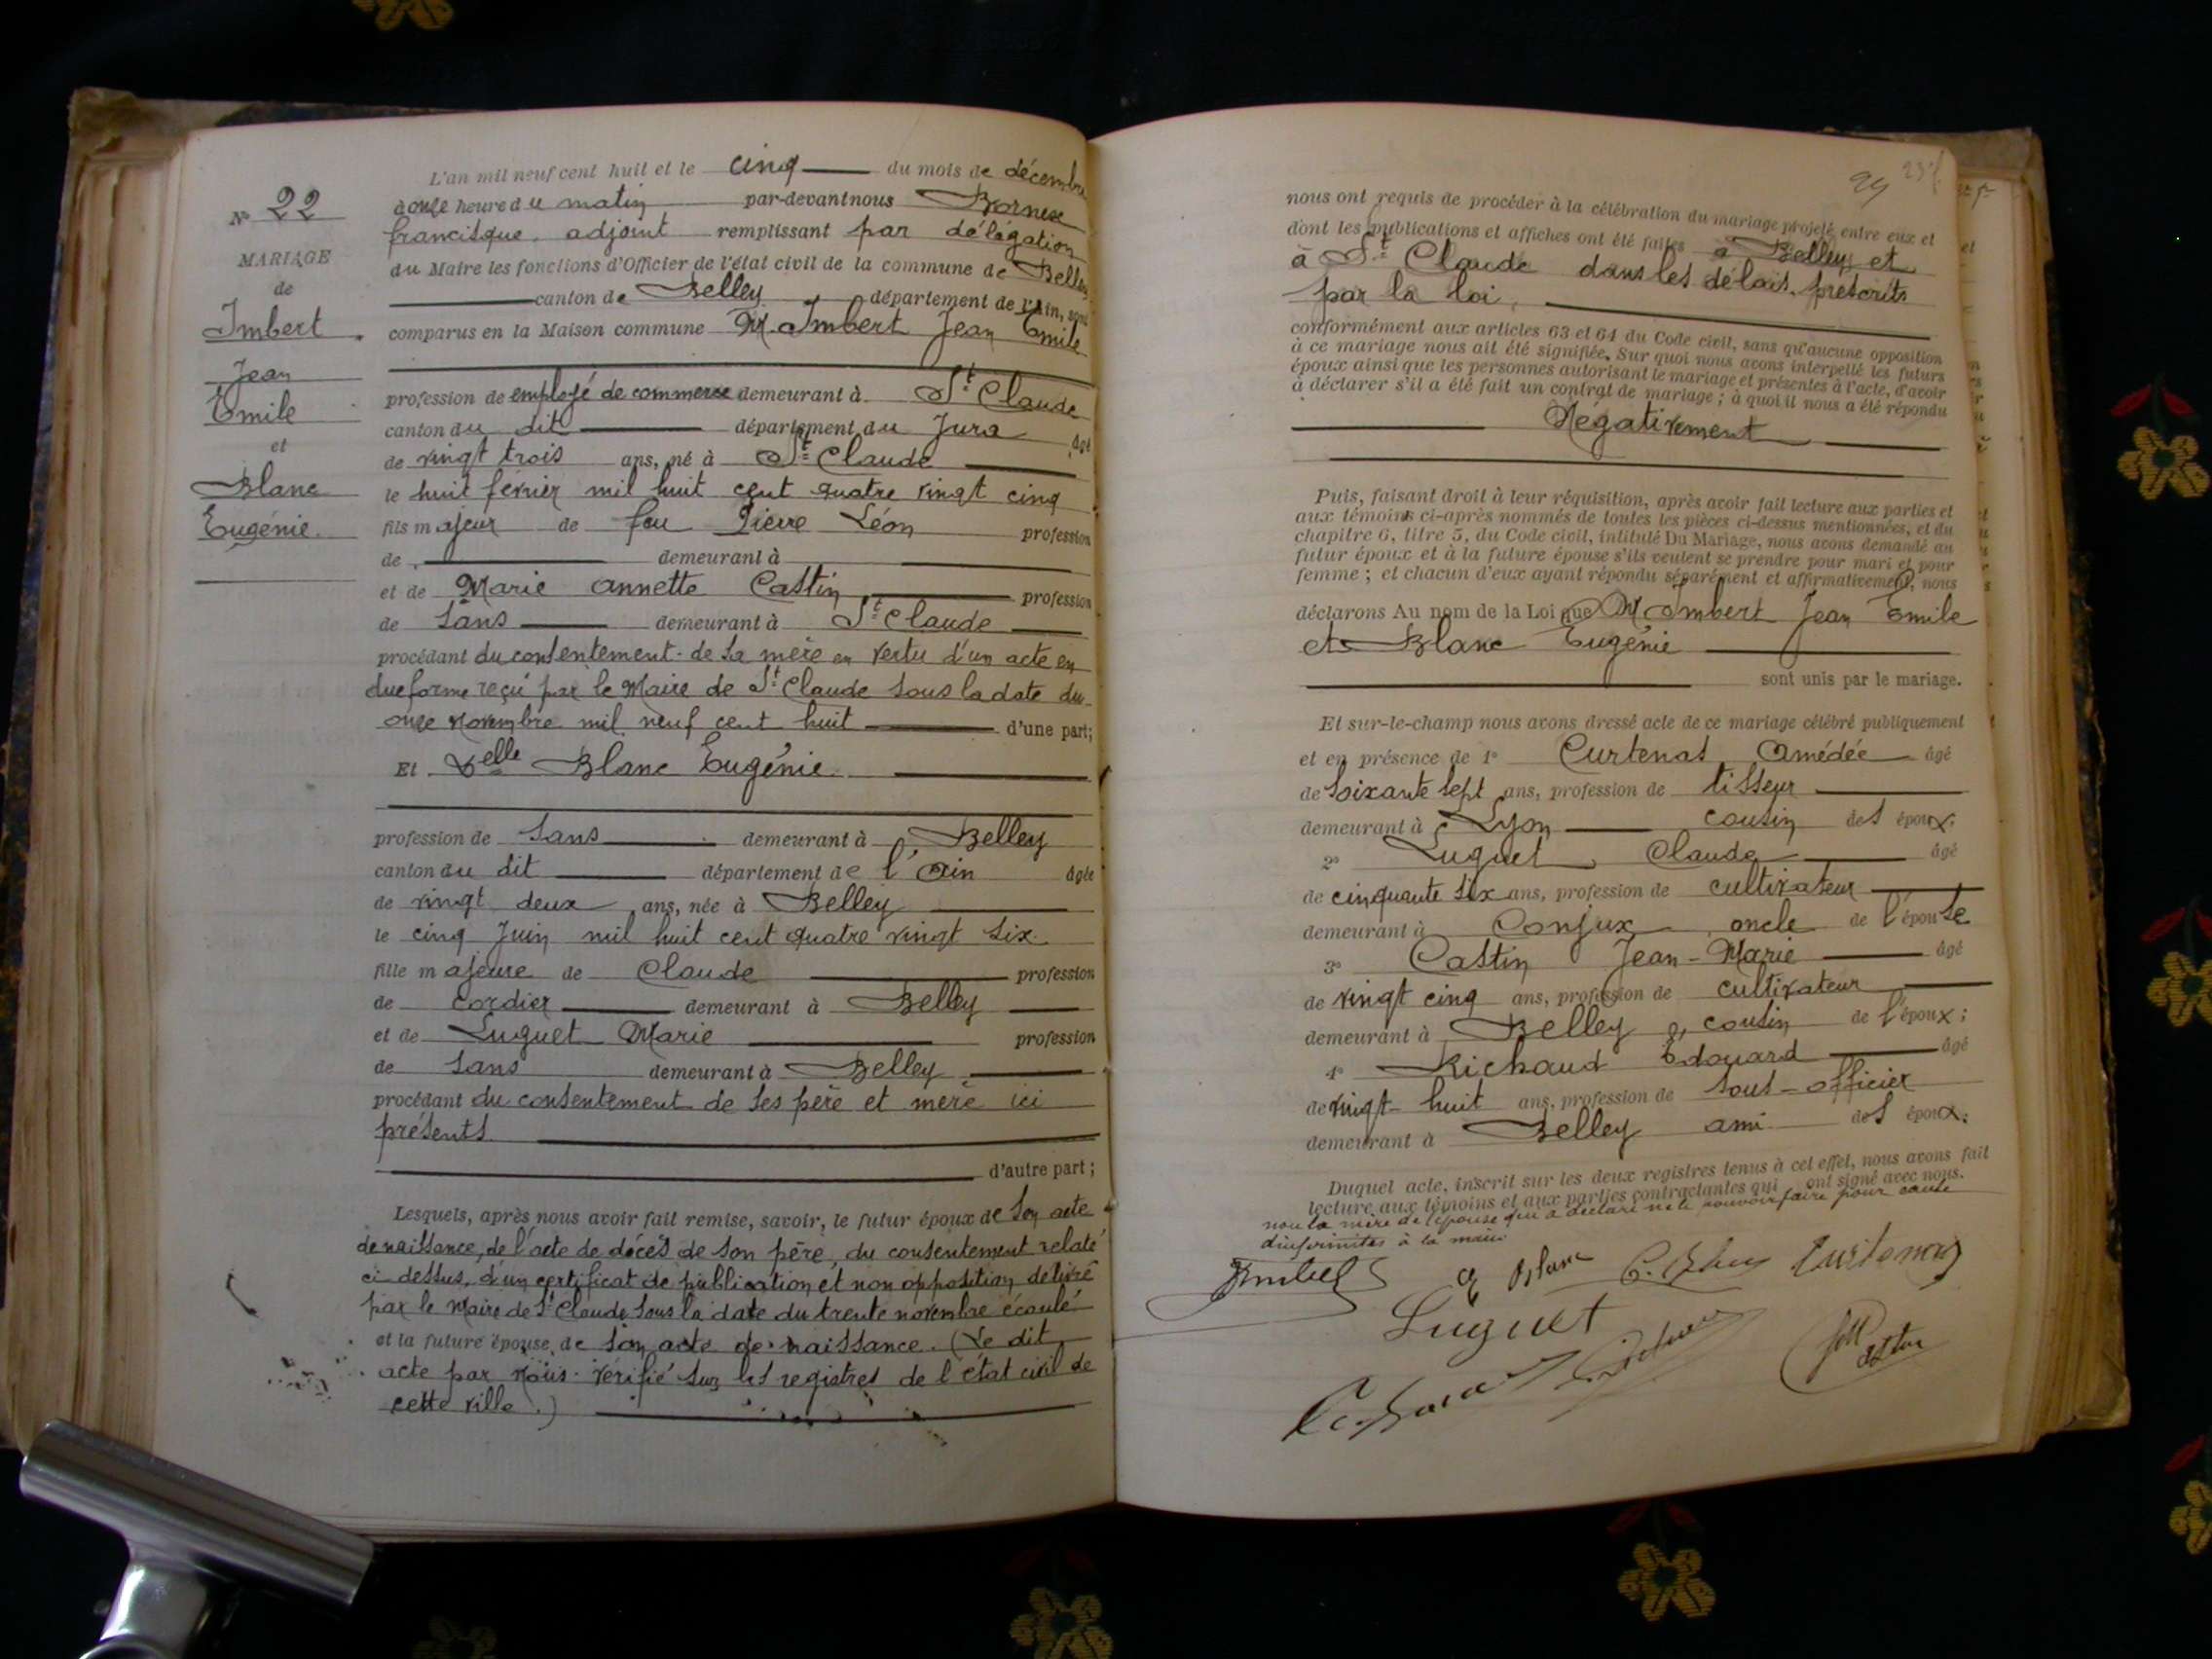 N° 22
MARIAGE
de
Imbert
Jean
Emile
et
Blanc
Eugénie.
L'an mil neuf cent huit et le cinq du mois de décembre
à onze heure du matin par-devant nous Bornex
francisque, adjoint remplissant par délégation
du Maire les fonctions d'Officier de l'état civil de la commune de Belley
canton de Belley département de l'Ain, sont
comparus en la Maison commune M. Imbert Jean Emile
profession de employé de commerce demeurant à St Claude
canton du dit département du Jura âgé
de vingt trois ans, né à St Claude
le huit février mil huit cent quatre vingt cinq
fils majeur de feu Pierre Léon profession
de demeurant à
et de Marie annette Castin profession
de Sans demeurant à St Claude
procédant du consentement de sa mère en vertu d'un acte en
due forme reçu par le Maire de St Claude sous la date du
onze Novembre mil neuf cent huit d'une part;
Et Delle Blanc Eugénie
profession de Sans demeurant à Belley
canton du dit département de l'Ain âgée
de vingt deux ans, née à Belley
le cinq Juin mil huit cent quatre vingt six
fille majeure de Claude profession
de cordier demeurant à Belley
et de Luguet Marie profession
de Sans demeurant à Belley
procédant du consentement de ses père et mère ici
présents
d'autre part;
Lesquels, après nous avoir fait remise, savoir, le futur époux de son acte
de naissance, de l'acte de décès de son père, du consentement relaté
ci dessus, d'un certificat de publication et non opposition délivré
par le Maire de St Claude sous la date du trente novembre écoulé
et la future épouse, de son acte de naissance. (Le dit
acte par Nous vérifié sur les registres de l'état civil de
cette ville.)
24 237
nous ont requis de procéder à la célébration du mariage projeté entre eux et
dont les publications et affiches ont été faites à Belley et
à St Claude dans les délais prescrits
par la loi,
conformément aux articles 63 et 64 du Code civil, sans qu'aucune opposition
à ce mariage nous ait été signifiée. Sur quoi nous avons interpellé les futurs
époux ainsi que les personnes autorisant le mariage et présentes à l'acte, d'avoir
à déclarer s'il a été fait un contrat de mariage; à quoi il nous a été répondu
Négativement
Puis, faisant droit à leur réquisition, après avoir fait lecture aux parties et
aux témoins ci-après nommés de toutes les pièces ci-dessus mentionnées, et du
chapitre 6, titre 5, du Code civil, intitulé Du Mariage, nous avons demandé au
futur époux et à la future épouse s'ils veulent se prendre pour mari et pour
femme; et chacun d'eux ayant répondu séparément et affirmativement, nous
déclarons Au nom de la Loi que M Imbert Jean Emile
et Blanc Eugénie
sont unis par le mariage.
Et sur-le-champ nous avons dressé acte de ce mariage célébré publiquement
et en présence de 1° Curtenat Amédée âgé
de Soixante sept ans, profession de tisseur
demeurant à Lyon cousin des époux;
2° Luguet Claude âgé
de cinquante six ans, profession de cultivateur
demeurant à Conjux, oncle de l'épouse
3° Castin Jean-Marie âgé
de vingt cinq ans, profession de cultivateur
demeurant à Belley, cousin de l'époux;
4° Richaud Edouard âgé
de vingt-huit ans, profession de sous-officier
demeurant à Belley ami des époux;
Duquel acte, inscrit sur les deux registres tenus à cet effet, nous avons fait
lecture aux témoins et aux parties contractantes qui ont signé avec nous.
non la mère de l'épouse qui a déclaré ne le pouvoir faire pour cause
d'infirmités à la main
Imbert E Blanc C. Blanc Curtenat
Luguet
JM Castin